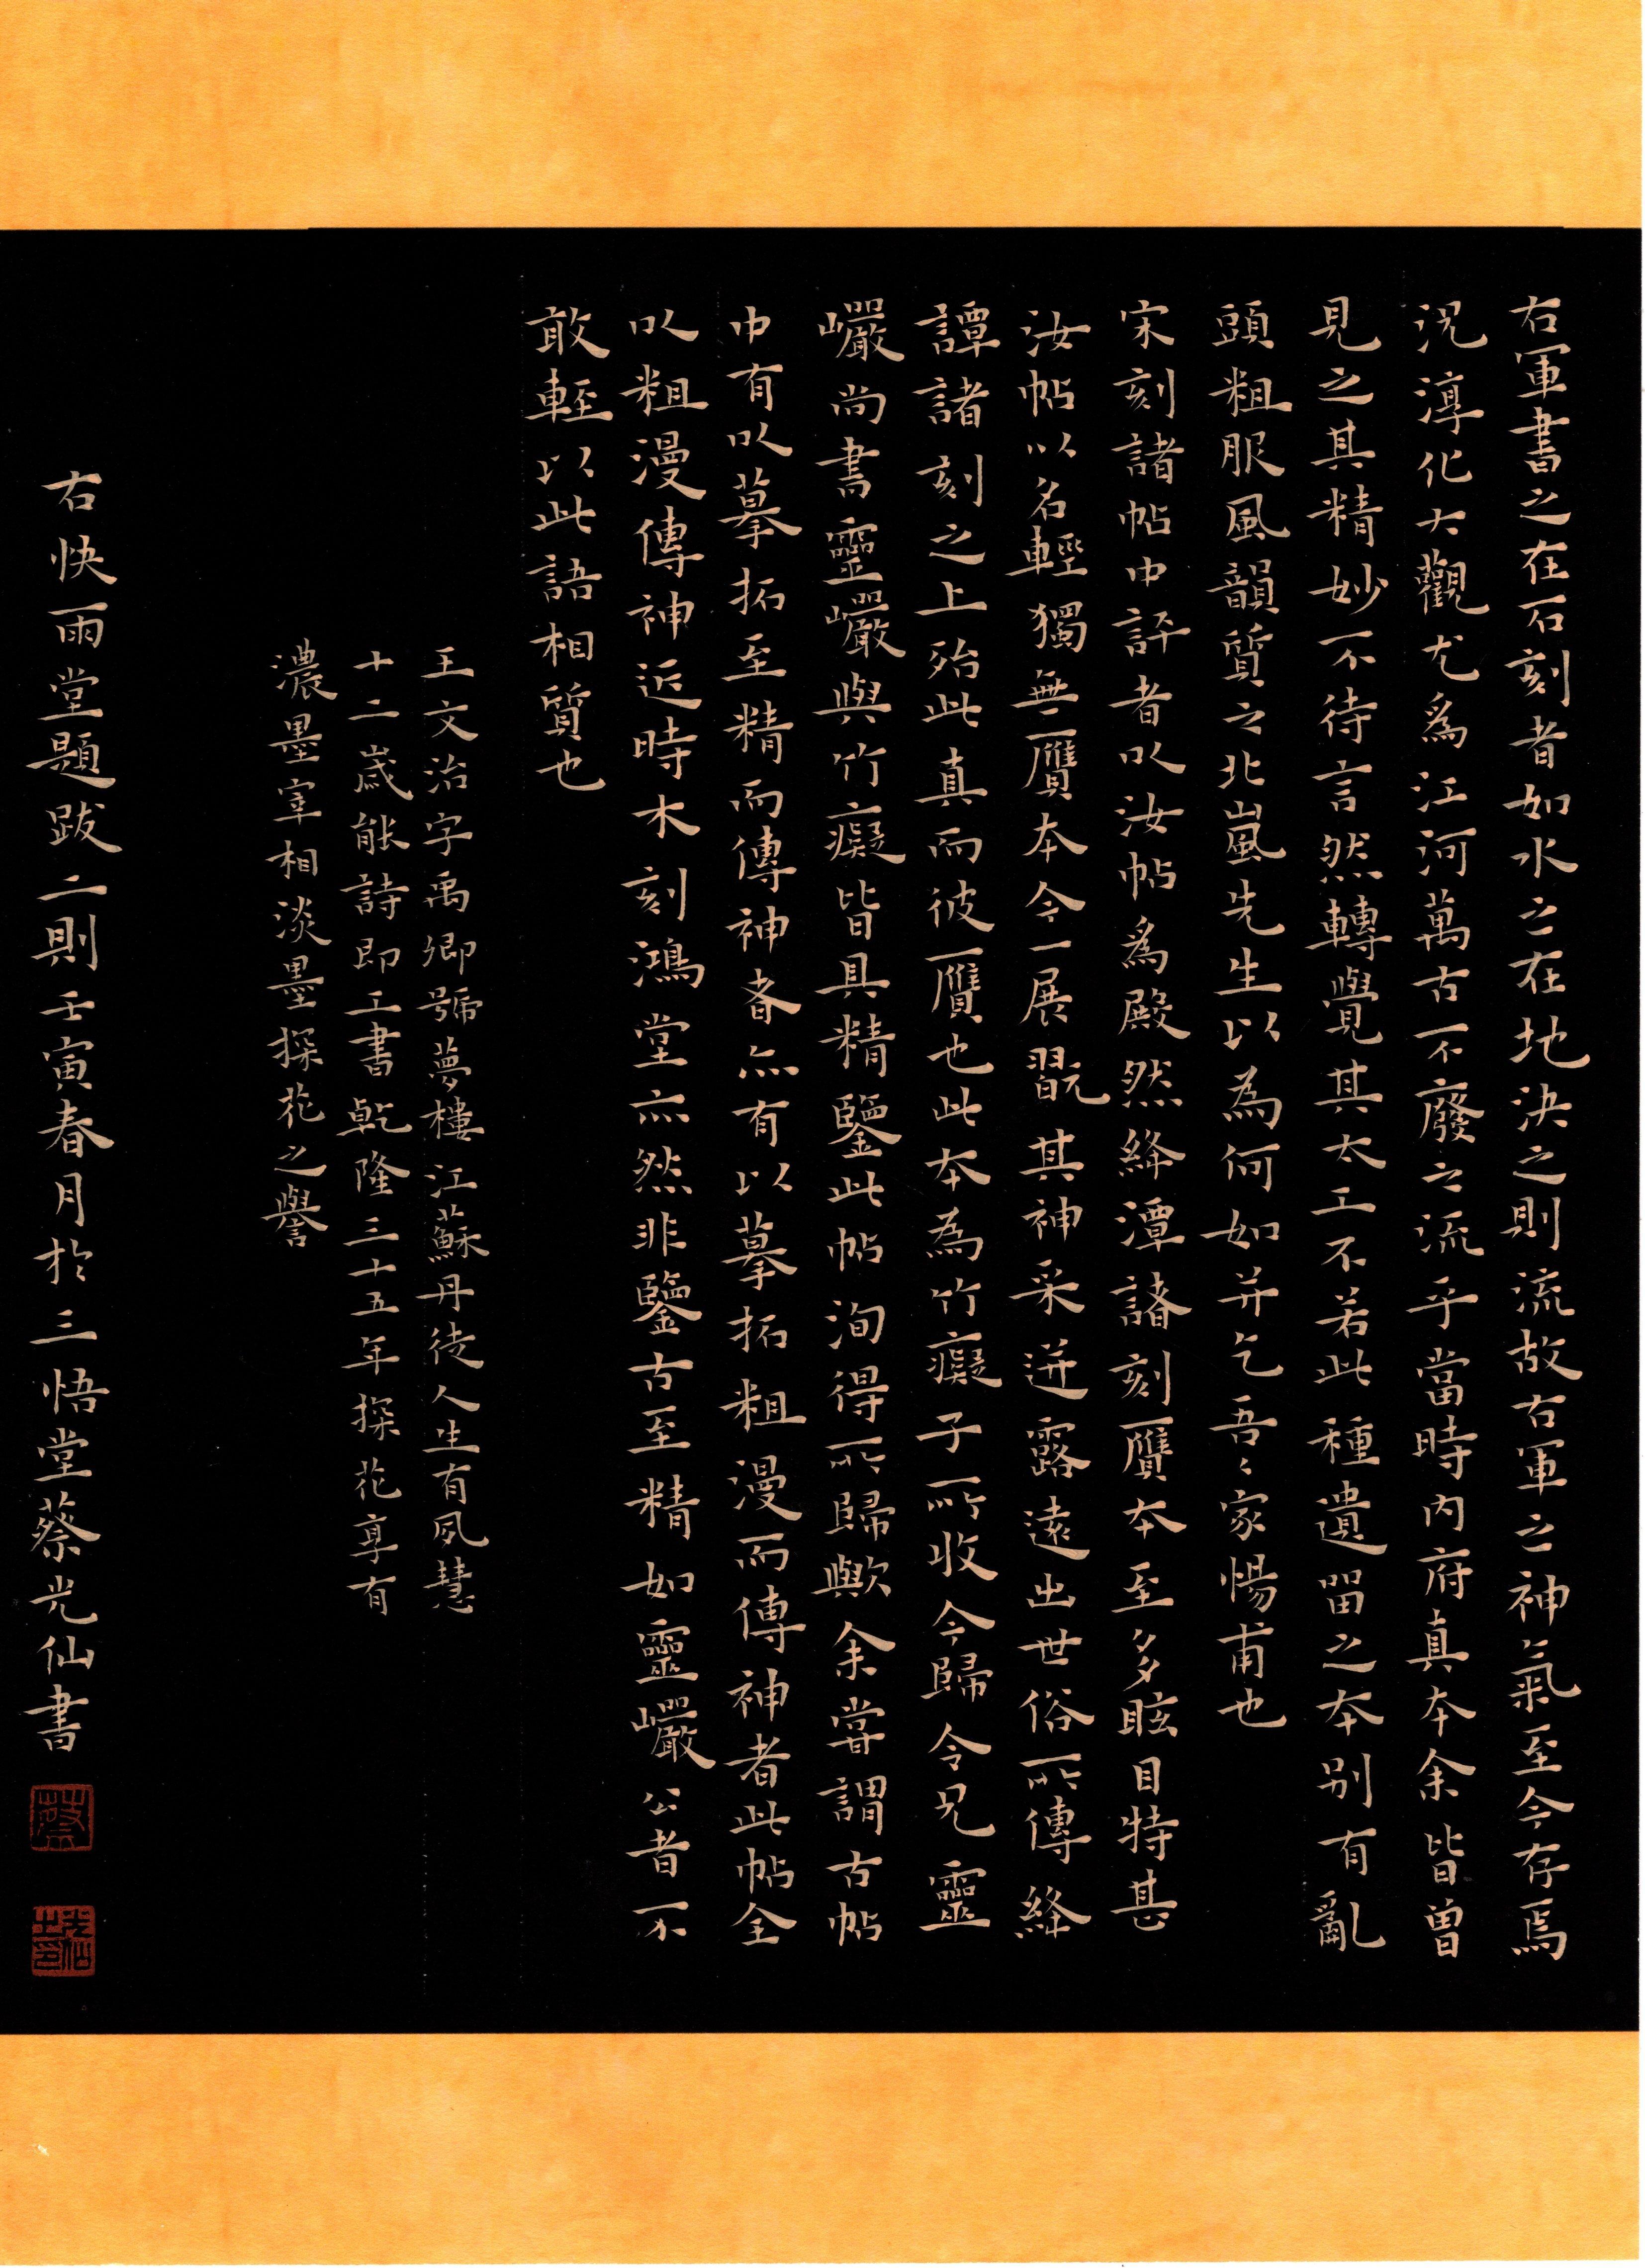 右軍書之在石刻者如水之在地決之則流故右軍之神氣至今存焉
況淳化大觀尤為江河萬古不廢之流乎當時內府真本余皆曾
見之其精妙不待言然轉覺其太工不若此種遺留之本別有亂
頭粗服風韻質之北嵐先生以為何如并乞吾〻家惕甫也
宋刻諸帖中評者以汝帖為殿然絳潭諸刻贗本至多眩目特甚
汝帖以名輕獨無贗本今一展翫其神采迸露遠出世俗所傳絳
譚諸刻之上殆此真而彼贗也此本為竹癡子所收今歸令兄靈
巖尚書靈巖與竹癡皆具精鑒此帖洵得所歸歟余嘗謂古帖
中有以摹拓至精而傳神者亦有以摹拓粗漫而傳神者此帖全
以粗漫傳神近時木刻鴻堂亦然非鑒古至精如靈巖公者不
敢輕以此語相質也
王文治字禹卿號夢樓江蘇丹徒人生有夙慧
十二歲能詩即工書乾隆三十五年探花享有
濃墨宰相淡墨探花之譽
右快雨堂題跋二則壬寅春月於三悟堂蔡光仙書
蔡
光仙之印